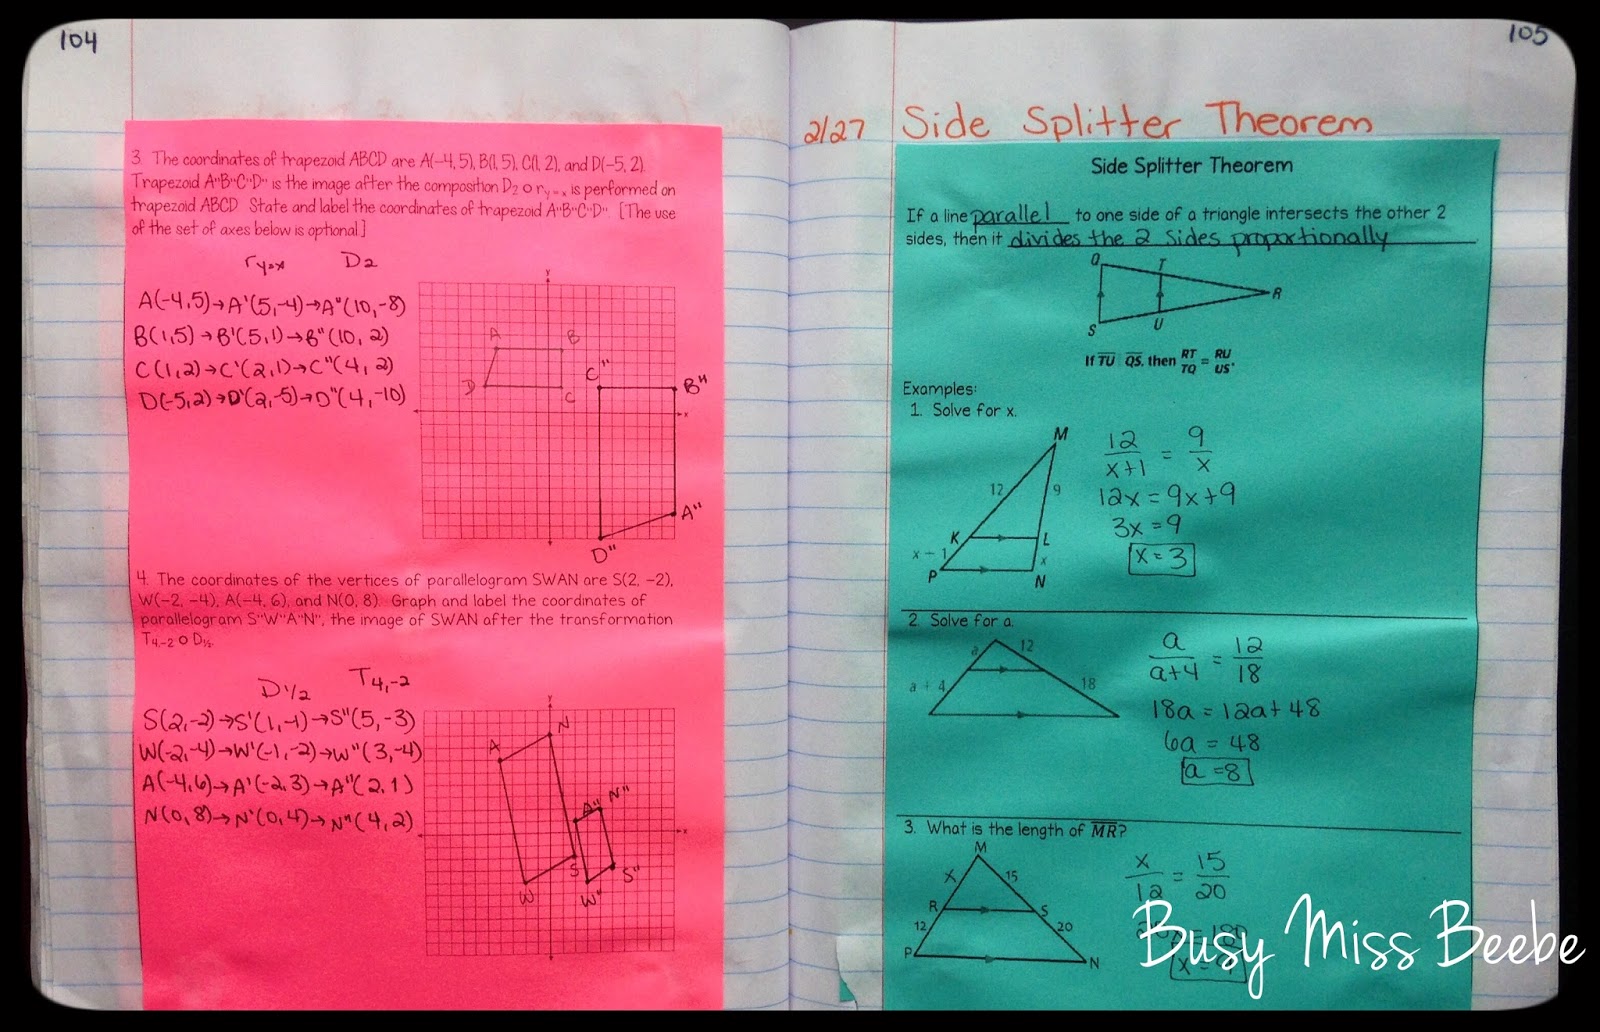 104
3. The coordinates of trapezoid ABCD are A(-4, 5), B(1, 5), C(1, 2), and D(-5, 2).
Trapezoid A"B"C"D" is the image after the composition D₂ o r y=x is performed on
trapezoid ABCD. State and label the coordinates of trapezoid A"B"C"D". [The use
of the set of axes below is optional.]
r y=x D2
A(-4,5)→A'(5,-4)→A"(10,-8)
B(1,5)→B'(5,1)→B"(10, 2)
C(1,2)→C'(2,1)→C"(4, 2)
D(-5,2)→D'(2,-5)→D"(4,-10)
y
A B
C" B"
D C
x
A"
D"
4. The coordinates of the vertices of parallelogram SWAN are S(2, -2),
W(-2, -4), A(-4, 6), and N(0, 8). Graph and label the coordinates of
parallelogram S"W"A"N", the image of SWAN after the transformation
T₄,₋₂ o D½.
D 1/2 T 4,-2
S(2,-2)→S'(1,-1)→S"(5,-3)
W(-2,-4)→W'(-1,-2)→W"(3,-4)
A(-4,6)→A'(-2,3)→A"(2,1)
N(0,8)→N'(0,4)→N"(4,2)
y
A N
A" N"
x
S S"
W W"
105
2/27 Side Splitter Theorem
Side Splitter Theorem
If a line parallel to one side of a triangle intersects the other 2
sides, then it divides the 2 sides proportionally
Q T
R
S U
If TU QS, then RT/TQ = RU/US.
Examples:
1. Solve for x.
M
12 9
K L
x - 1 x
P N
12/x+1 = 9/x
12x = 9x+9
3x = 9
x = 3
2. Solve for a.
a 12
a + 4 18
a/a+4 = 12/18
18a = 12a + 48
6a = 48
a = 8
3. What is the length of MR?
M
x 15
R S
12 20
P N
x/12 = 15/20
Busy Miss Beebe